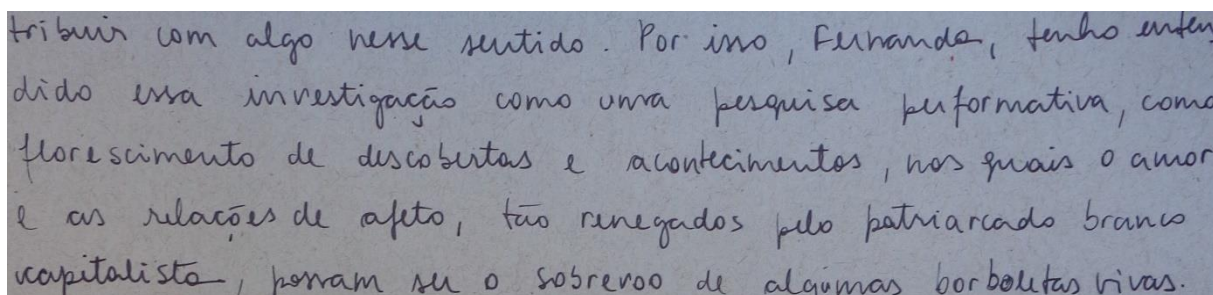 tribuir com algo nesse sentido. Por isso, Fernanda, tenho enten
dido essa investigação como uma pesquisa performativa, como
florescimento de descobertas e acontecimentos, nos quais o amor
e as relações de afeto, tão renegados pelo patriarcado branco
capitalista, possam ser o sobrevoo de algumas borboletas vivas.